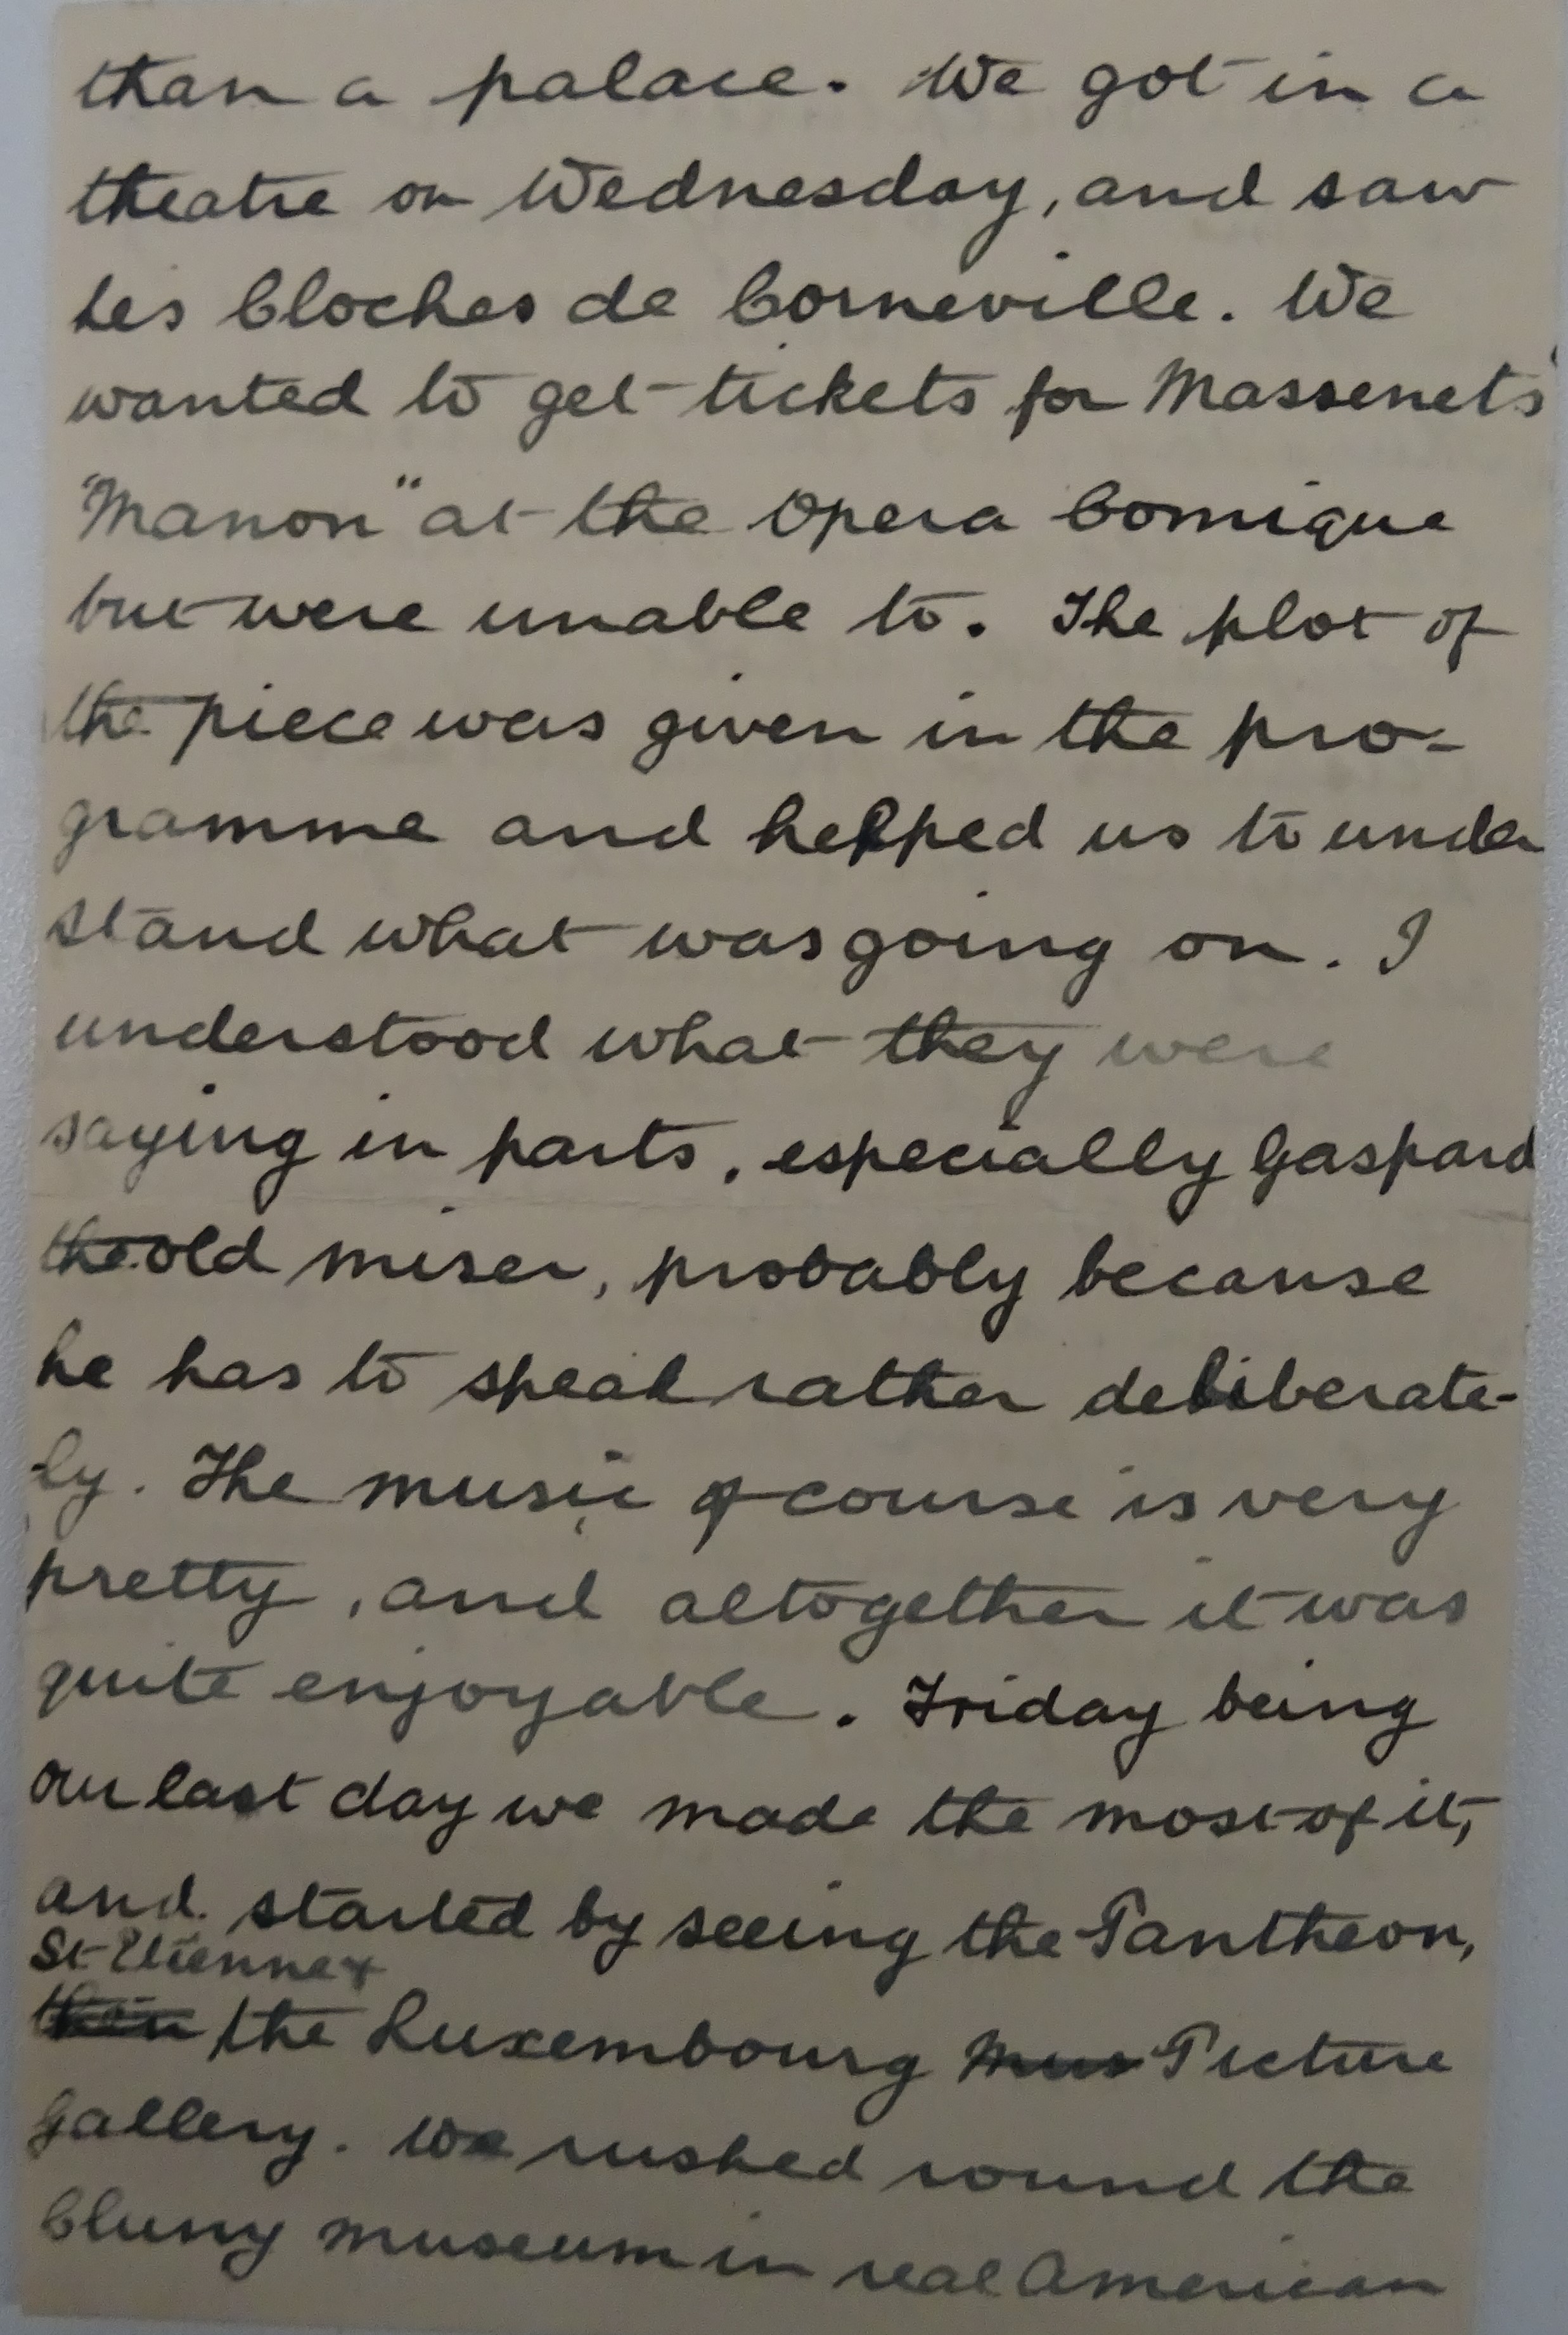 than a palace. We got in a
theatre on Wednesday, and saw
Les Cloches de Corneville. We
wanted to get tickets for Massenets'
"Manon" at the Opera Comique
but were unable to. The plot of
the piece was given in the pro-
gramme and helped us to under
stand what was going on. I
understood what they were
saying in parts, especially Gaspard
the old miser, probably because
he has to speak rather deliberate-
ly. The music of course is very
pretty, and altogether it was
quite enjoyable. Friday being
our last day we made the most of it,
and started by seeing the Pantheon,
St Etienne +
then the Luxembourg Mus Picture
Gallery. We rushed round the
Cluny museum in real American